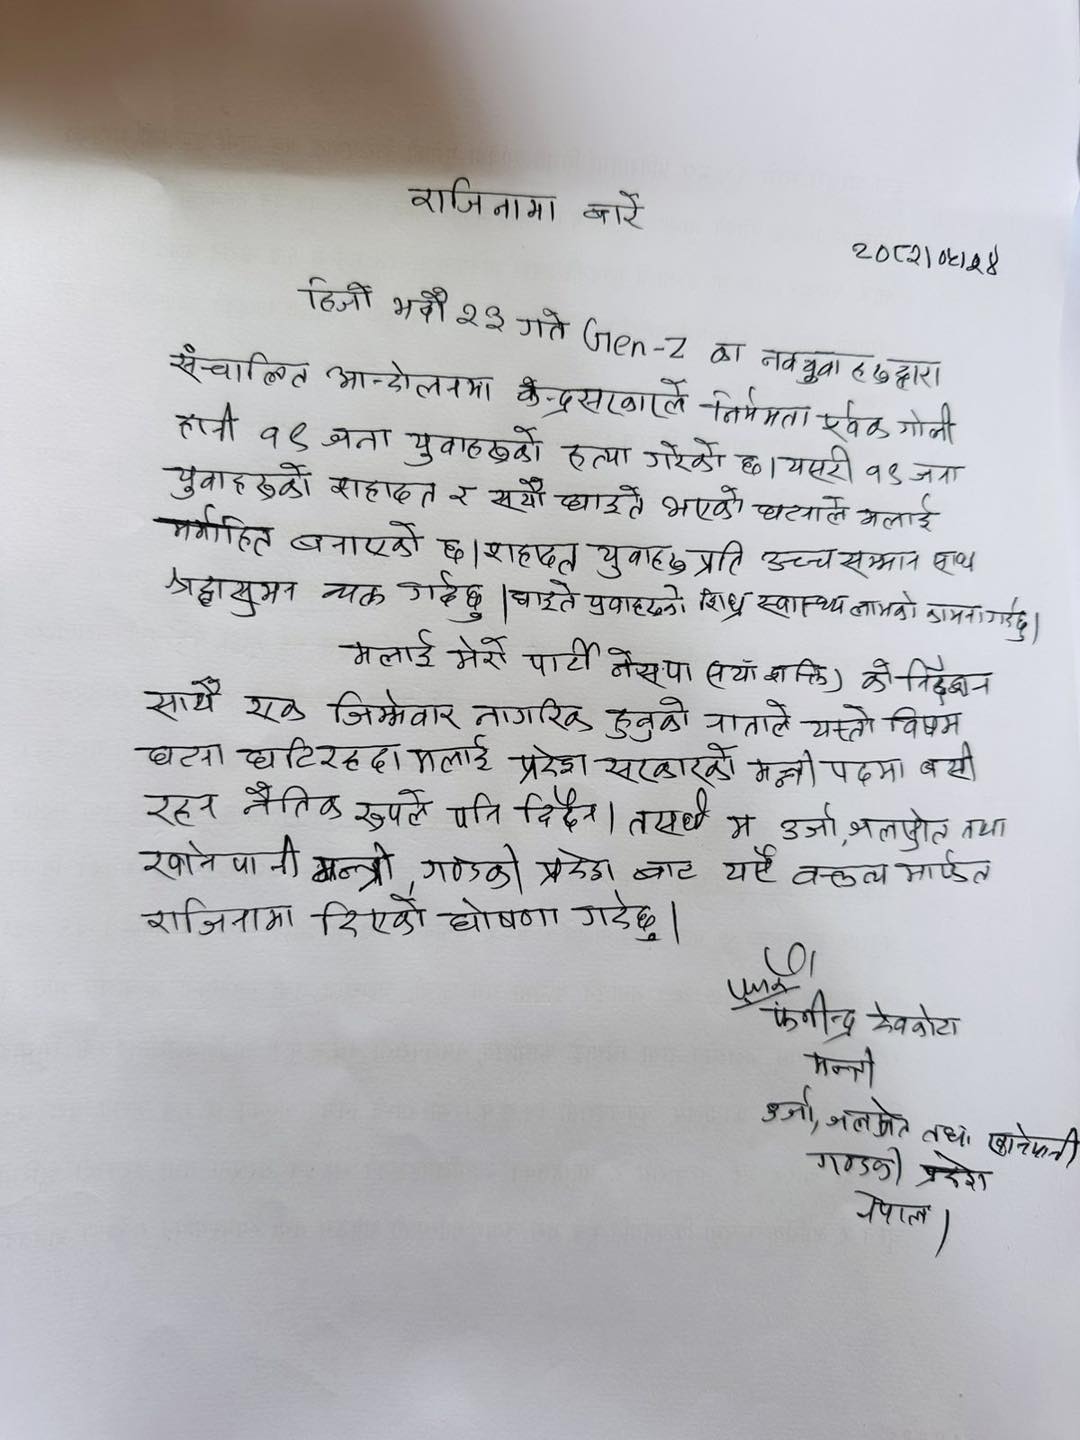 राजिनामा बारे
२०८२।०५।२४
हिजो भदौ २३ गते Gen-Z का नवयुवाहरुद्वारा
संचालित आन्दोलनमा केन्द्रसरकारले निर्ममता पूर्वक गोली
हानी १९ जना युवाहरुको हत्या गरेको छ। यसरी १९ जना
युवाहरुको शहादत र सयौ घाइते भएको घटनाले मलाई
मर्माहित बनाएको छ। शहादत युवाहरु प्रति उच्च सम्मान साथ
श्रद्धासुमन व्यक्त गर्दछु। घाइते युवाहरुको शिघ्र स्वास्थ्य लाभको कामना गर्दछु।
मलाई मेरो पार्टी नेसपा (नयाँ शक्ति) को निर्देशन
साथै एक जिम्मेवार नागरिक हुनुको नाताले यस्तो विषम
घटना घटिरहदा मलाई प्रदेश सरकारको मन्त्री पदमा बसी
रहन नैतिक रुपले पनि दिदैन। तसर्थ म उर्जा, जलस्रोत तथा
खानेपानी मन्त्री, गण्डकी प्रदेश बाट यसै वक्तव्य मार्फत
राजिनामा दिएको घोषणा गर्दछु।
फणीन्द्र देवकोटा
मन्त्री
उर्जा, जलस्रोत तथा खानेपानी
गण्डकी प्रदेश
नेपाल।